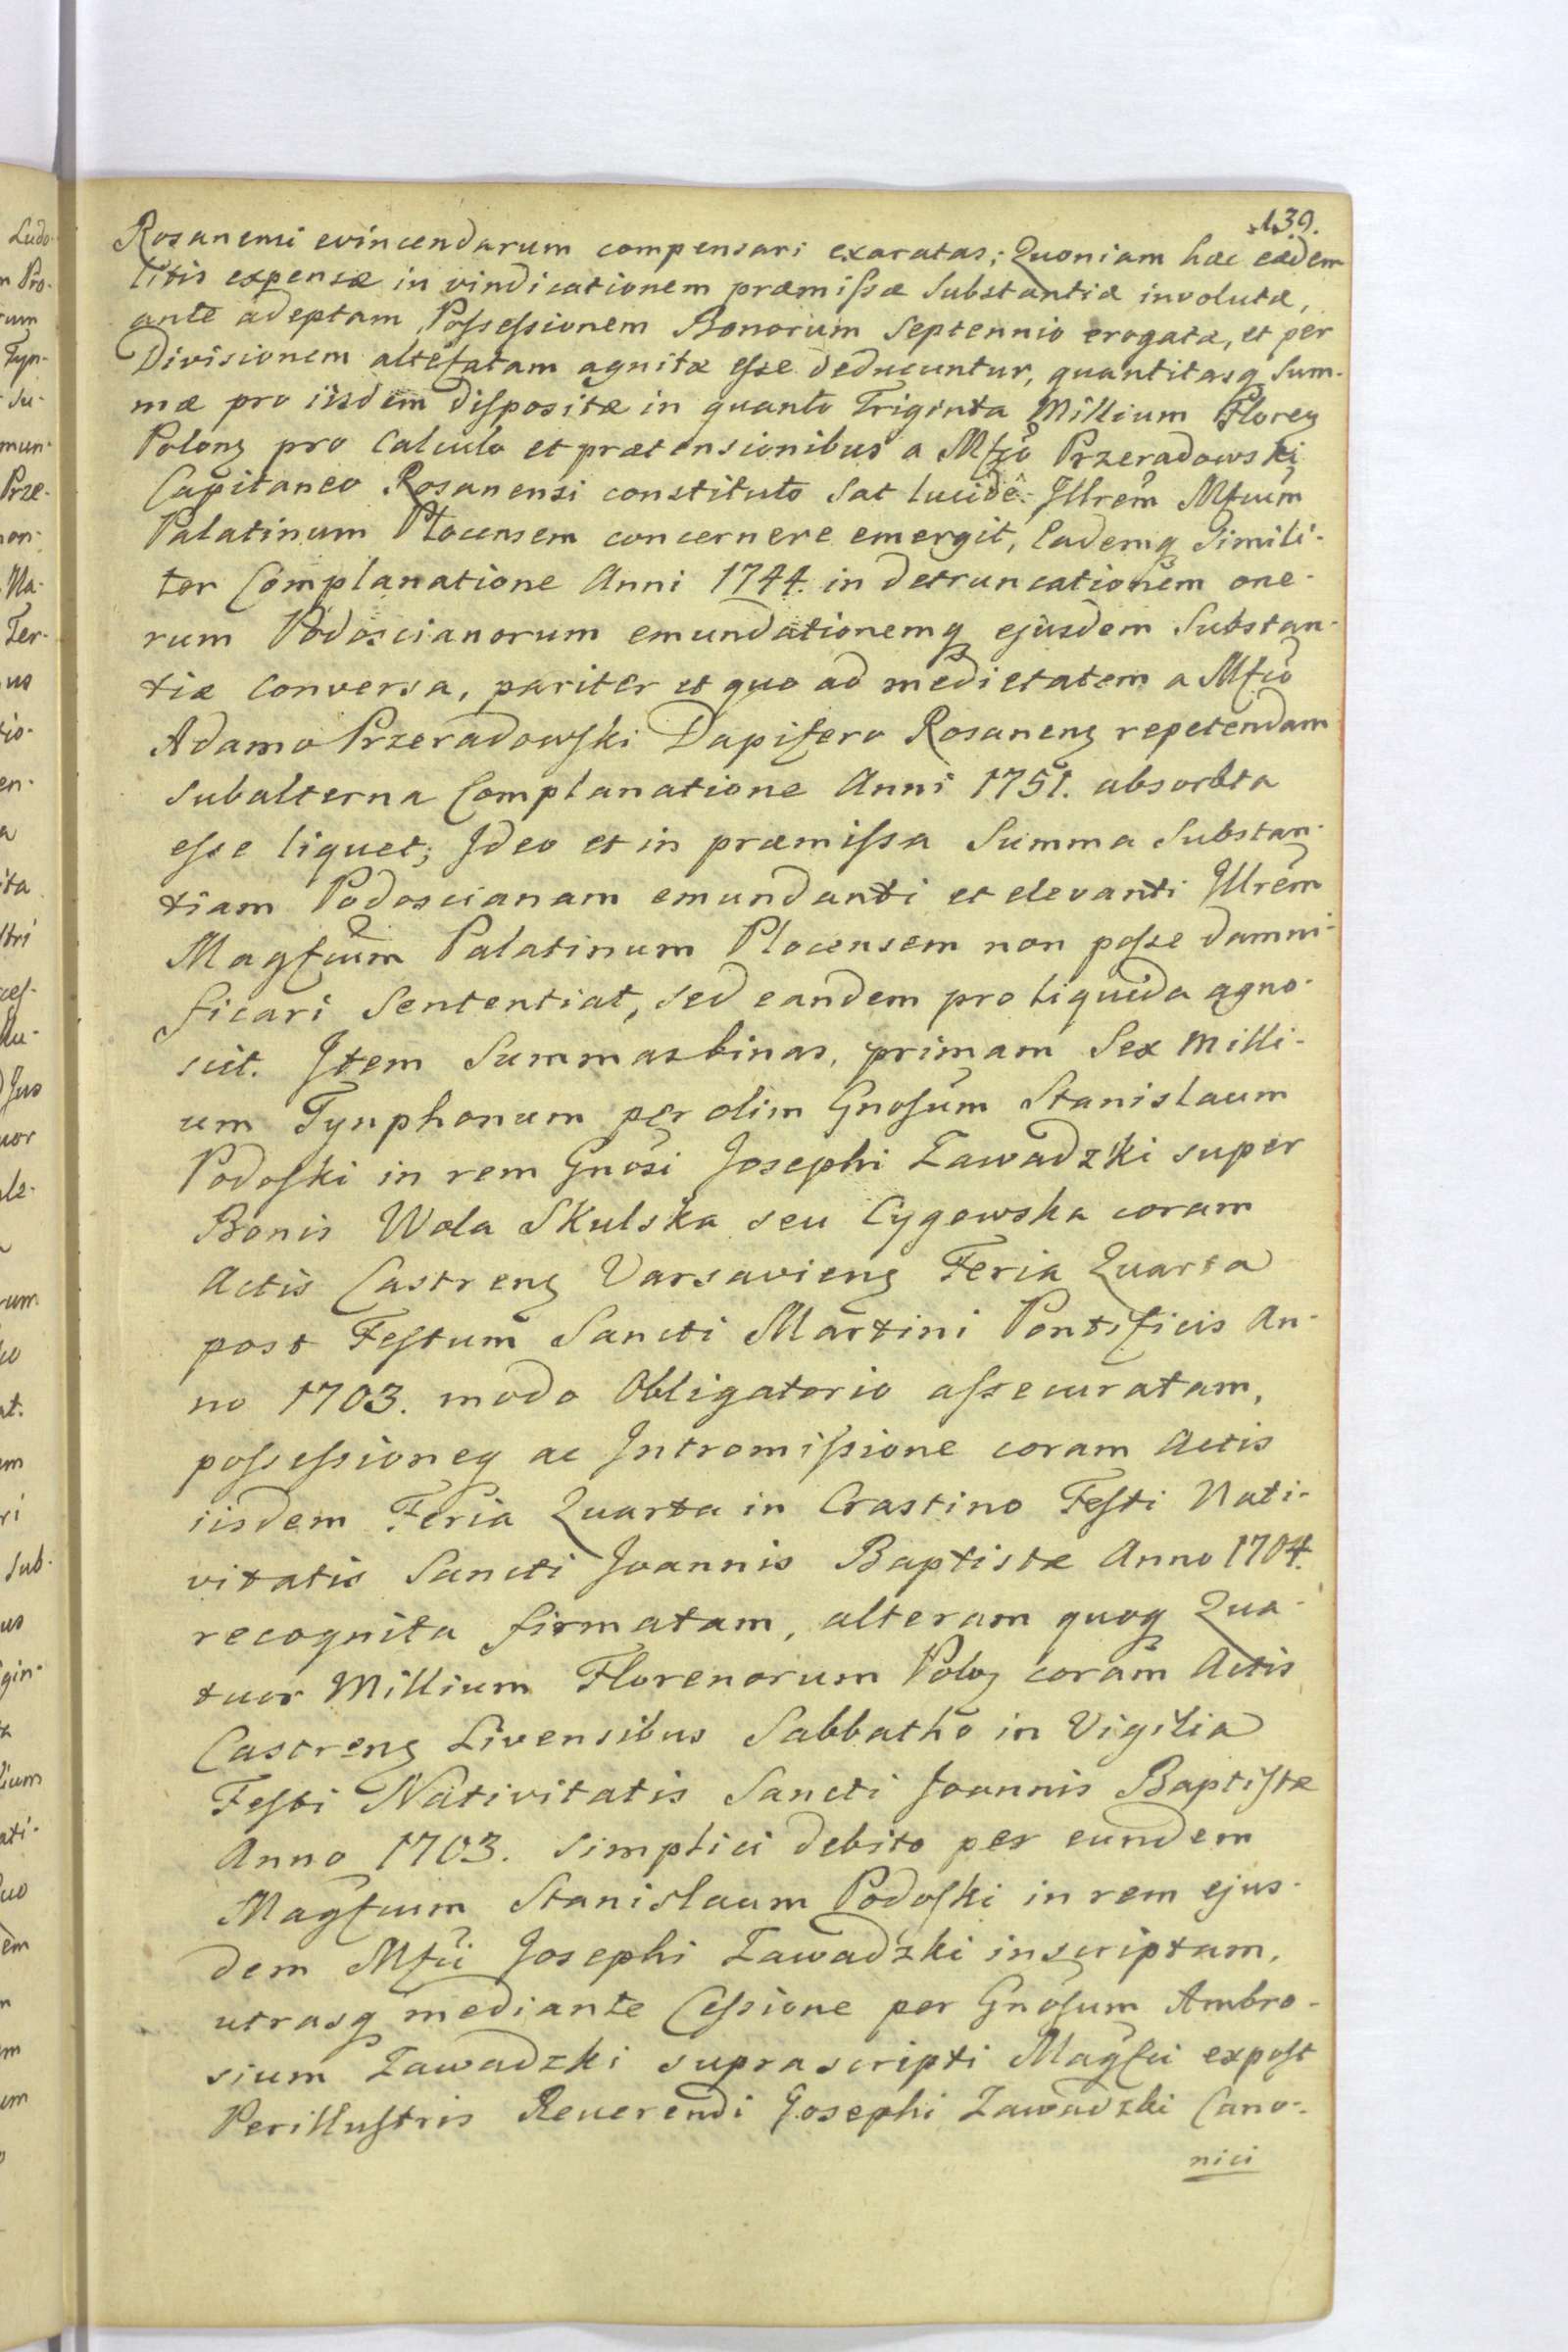 139.
Rosanensi evincendarum compensari exaratas; Quoniam hæ eædem
litis expensæ in vindicationem præmiſsæ Substantiæ involutæ,
ante adeptam Poſseſsionem Bonorum Septennio erogatæ, et per
Divisionem altefatam agnitæ eſse deducuntur, quantitasq Sum-
mæ pro iisdem diſpositæ in quanto Triginta Millium Floreɳ
Poloɳ pro Calculo et prætensionibus a Mfco Przeradowski
Capitaneo Rosanensi constituto Sat lucidè Jllrem Mfcum
Palatinum Plocensem concernere emergit, Eademq Simili-
ter Complanatione Anni 1744. in detruncationem one-
rum Podoscianorum emundationemq ejusdem Substan-
tiæ conversa, pariter et quo ad medietatem a Mfco
Adamo Przeradowſki Dapifero Rosaneɳ repetendam
subalterna Complanatione Anni 1751. absorbta
eſse liquet; Jdeo et in præmiſsa Summa Substan-
tiam Podoscianam emundanti et elevanti Jllrem
Magfcum Palatinum Plocensem non poſse damni-
ficari Sententiat, sed eandem pro liquida agno-
scit. Jtem Summas binas, primam Sex Milli-
um Tynphonum per olim Gnoſum Stanislaum
Podoſki in rem Gnosi Josephi Zawadzki super
Bonis Wola Skulska seu Cygowska coram
Actis Castreng Varsavieng Feria Quarta
post Feſtum Sancti Martini Pontificis An-
no 1703. modo Obligatorio aſsecuratam,
poſseſsioneq ac Jntromiſsione coram Actis
iisdem Feria Quarta in Crastino Feſti Nati-
vitatis Sancti Joannis Baptistæ Anno 1704.
recognita firmatam, alteram quoq Qua-
tuor Millium Florenorum Poloɳ coram Actis
Castreng Livensibus Sabbatho in Vigilia
Feſti Nativitatis Sancti Joannis Baptiſtæ
Anno 1703. simplici debito per eundem
Magfcum Stanislaum Podoſki in rem ejus-
dem Mfci Josephi Zawadzki inscriptam,
utrasq mediante Ceſsione per Gnoſum Ambro-
sium Zawadzki suprascripti Magfci expoſt
Perilluſtris Reverendi Josephi Zawadzki Cano-
nici